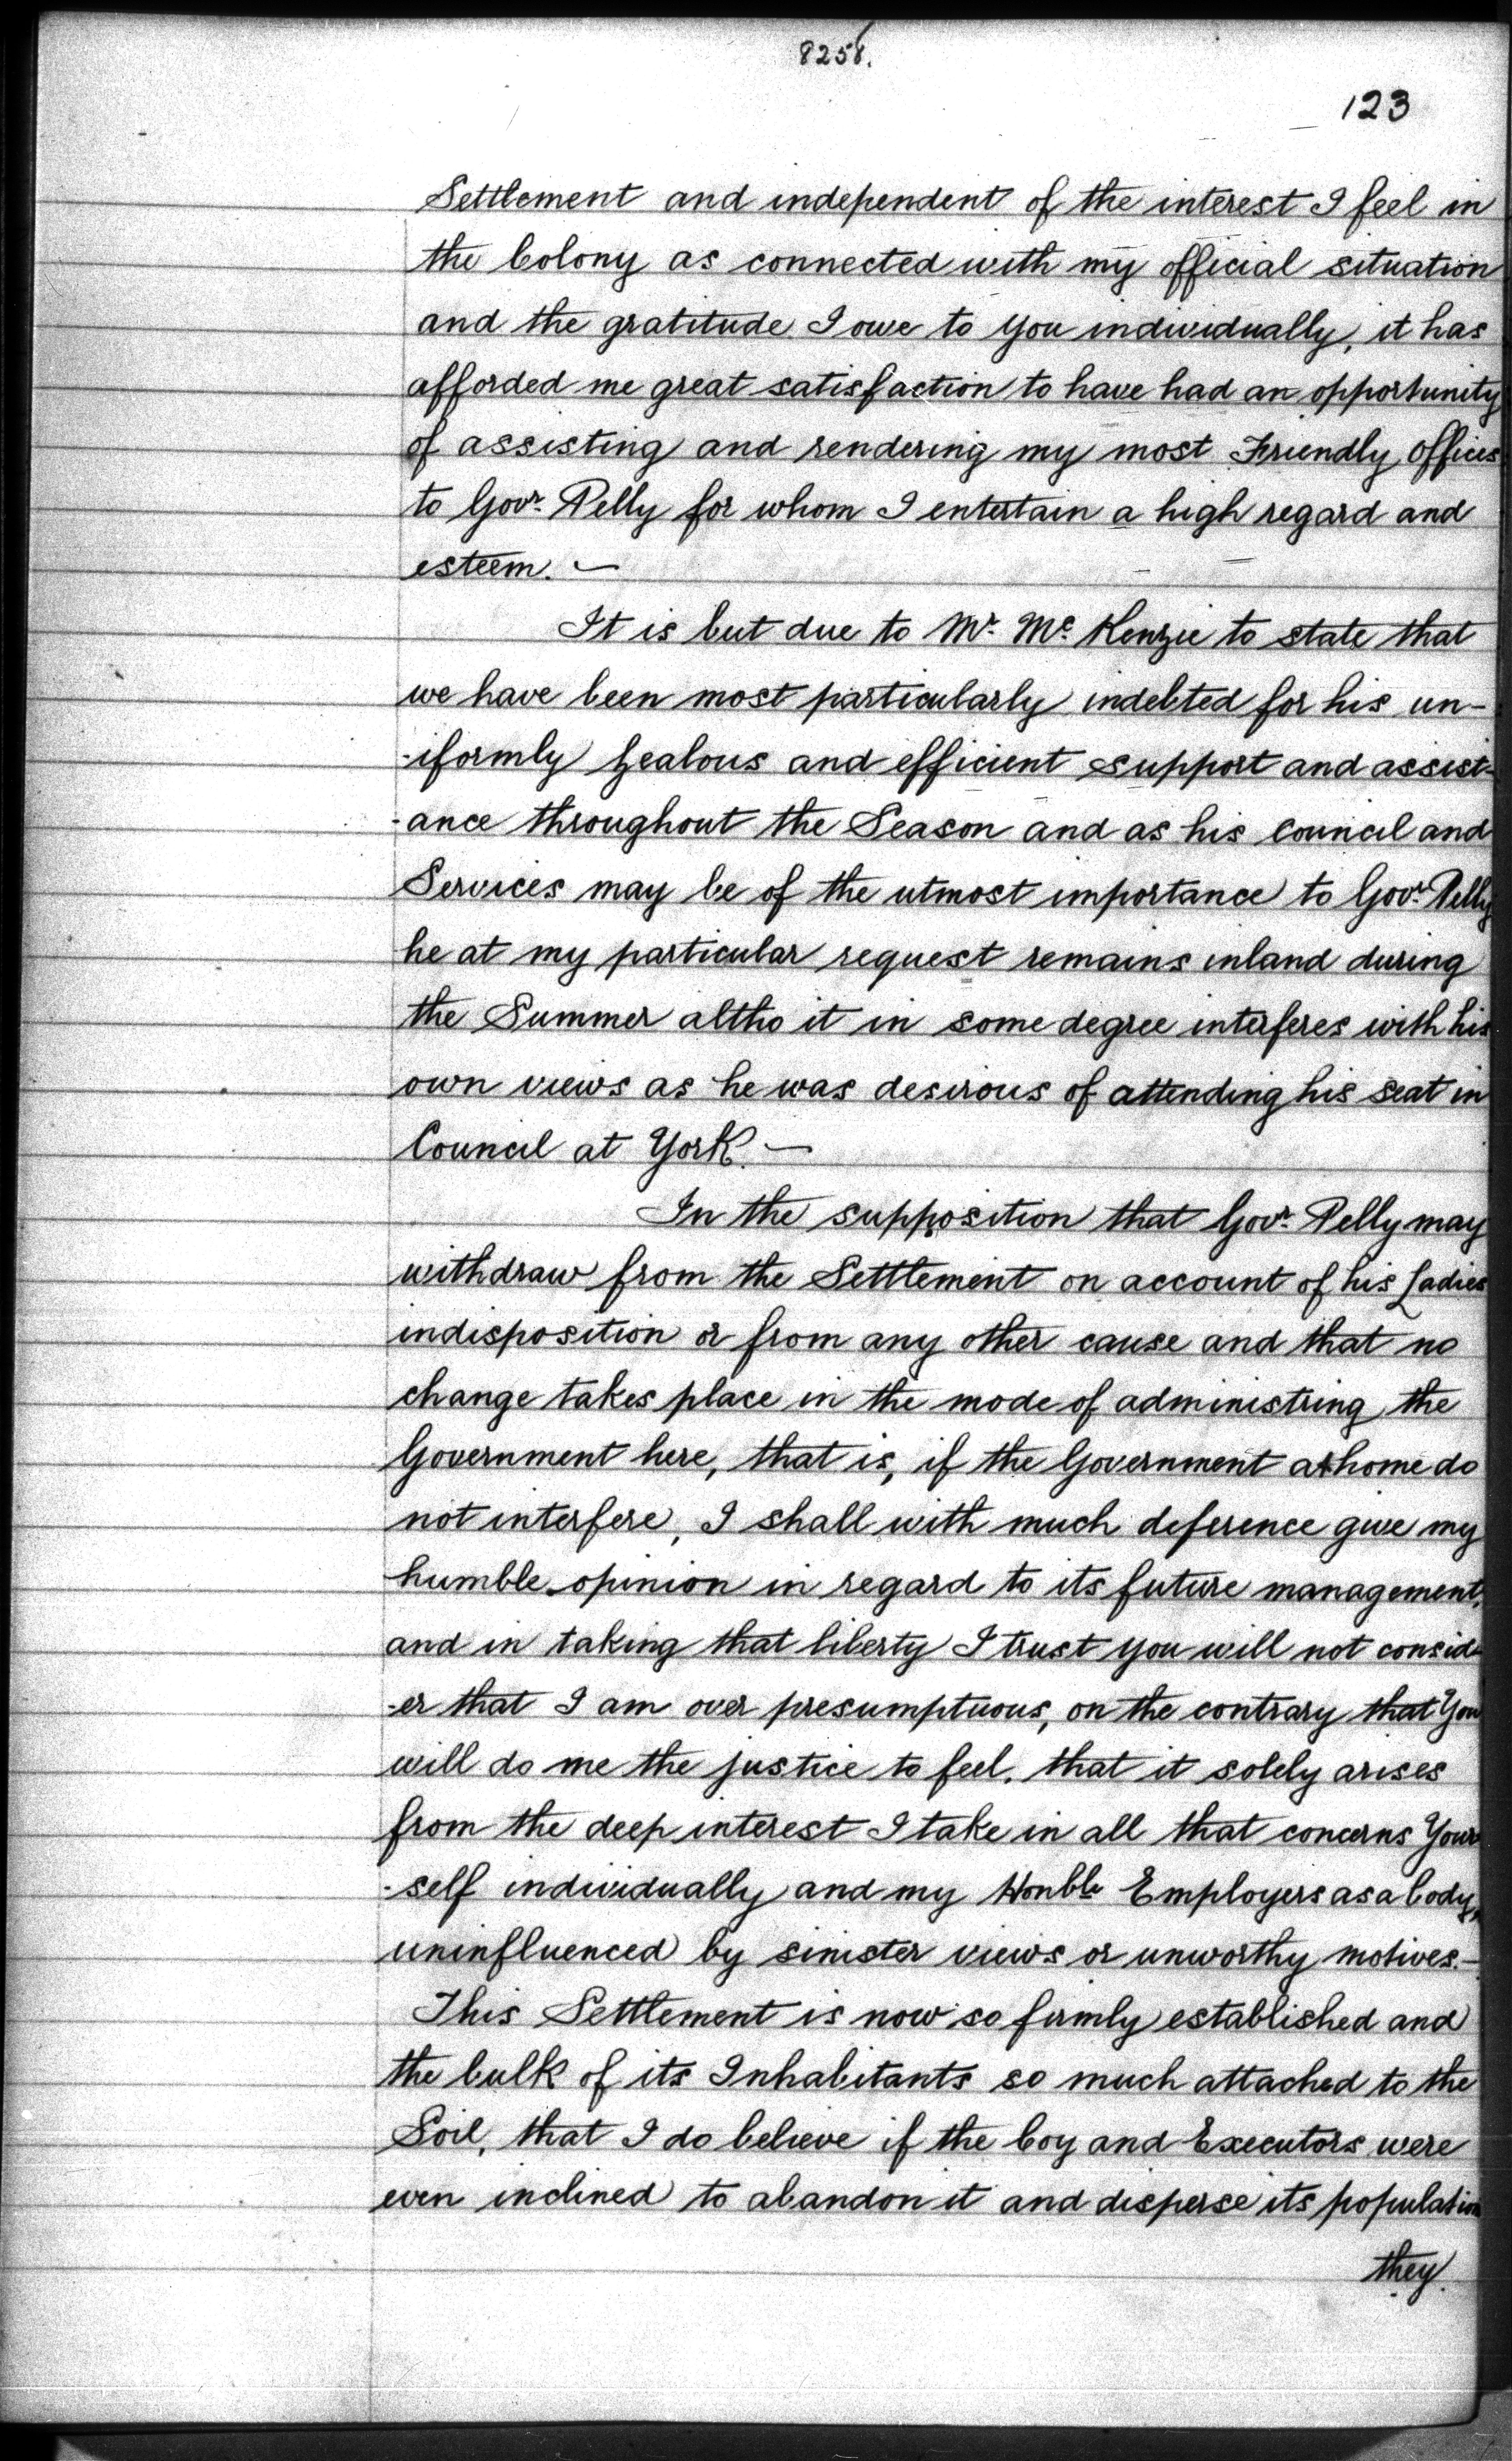 8258.
123
Settlement and independent of the interest I feel in
the Colony as connected with my official situation
and the gratitude I owe to you individually, it has
afforded me great satisfaction to have had an opportunity
of assisting and rendering my most Friendly offices
to Govr. Pelly for whom I entertain a high regard and
esteem. —
It is but due to Mr. Mc. Kenzie to state that
we have been most particularly indebted for his un-
-iformly zealous and efficient support and assist-
-ance throughout the Season and as his council and
Services may be of the utmost importance to Govr. Pelly
he at my particular request remains inland during
the Summer altho it in some degree interferes with his
own views as he was desirous of attending his seat in
Council at York. —
In the supposition that Govr. Pelly may
withdraw from the Settlement on account of his Ladies
indisposition or from any other cause and that no
change takes place in the mode of administring the
Government here, that is, if the Government at home do
not interfere, I shall with much deference give my
humble opinion in regard to its future management,
and in taking that liberty I trust you will not consid-
-er that I am over presumptuous, on the contrary that You
will do me the justice to feel, that it solely arises
from the deep interest I take in all that concerns Your
-self individually and my Honble Employers as a body,
uninfluenced by sinister views or unworthy motives. —
This Settlement is now so firmly established and
the bulk of its Inhabitants so much attached to the
Soil, that I do believe if the Coy and Executors were
even inclined to abandon it and disperse its population
they